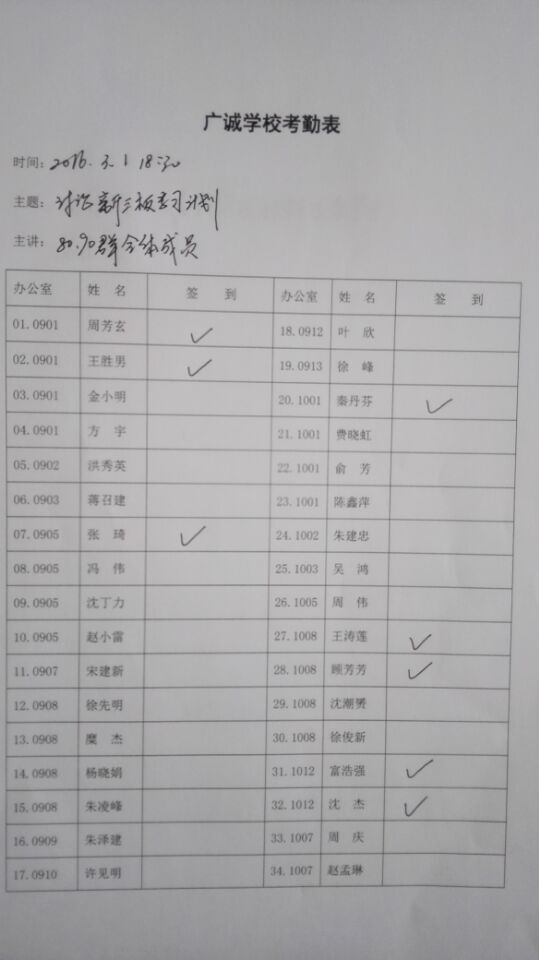 广诚学校考勤表
时间：2016.3.1 18:30
主题：讨论新三板学习计划
主讲：80.90群全体成员
办公室 姓 名 签 到 办公室 姓 名 签 到
01.0901 周芳玄 ✓ 18.0912 叶 欣
02.0901 王胜男 ✓ 19.0913 徐 峰
03.0901 金小明 20.1001 秦丹芬 ✓
04.0901 方 宇 21.1001 费晓虹
05.0902 洪秀英 22.1001 俞 芳
06.0903 蒋召建 23.1001 陈鑫萍
07.0905 张 琦 ✓ 24.1002 朱建忠
08.0905 冯 伟 25.1003 吴 鸿
09.0905 沈丁力 26.1005 周 伟
10.0905 赵小雷 27.1008 王涛莲 ✓
11.0907 宋建新 28.1008 顾芳芳 ✓
12.0908 徐先明 29.1008 沈潮赟
13.0908 糜 杰 30.1008 徐俊新
14.0908 杨晓娟 31.1012 富浩强 ✓
15.0908 朱凌峰 32.1012 沈 杰 ✓
16.0909 朱泽建 33.1007 周 庆
17.0910 许见明 34.1007 赵孟琳